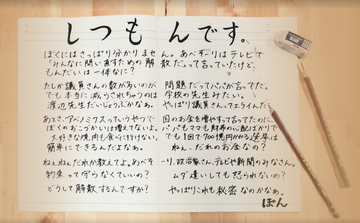 しつもんです。
ぼくにはさっぱり分かりません。あべそーりはテレビで
「みんなに問い直すための解散だって言っていたけど、
もんだいは一体なに?
たしか議員さんの数が多いのが 問題だってパパが言ってた。
でも本当にへらされちゃうのは 学校の先生みたい。
渡辺先生だいじょうぶかなぁ。 やっぱり議員さん
あとさ、アベノミクスっていうやつで 国のお金を増やすって言ってたのに、
ぼくのおこづかいは増えてないよ。 パパもママも財布の心配ばかりで
大好きな焼肉も食べに行けない。 でも1回で700億円かかる選挙は
簡単にできるんだよなぁ。 ねぇ、だれのお金なの?
ねぇねぇだれか教えてよ。あべそーり、政治家さん、テレビや新聞のみなさん。
約束って守らなくていいの? ムダ遣いしても怒られないの?
どうして解散するんですか? やっぱりこれも秘密なのかなぁ。
ぽん